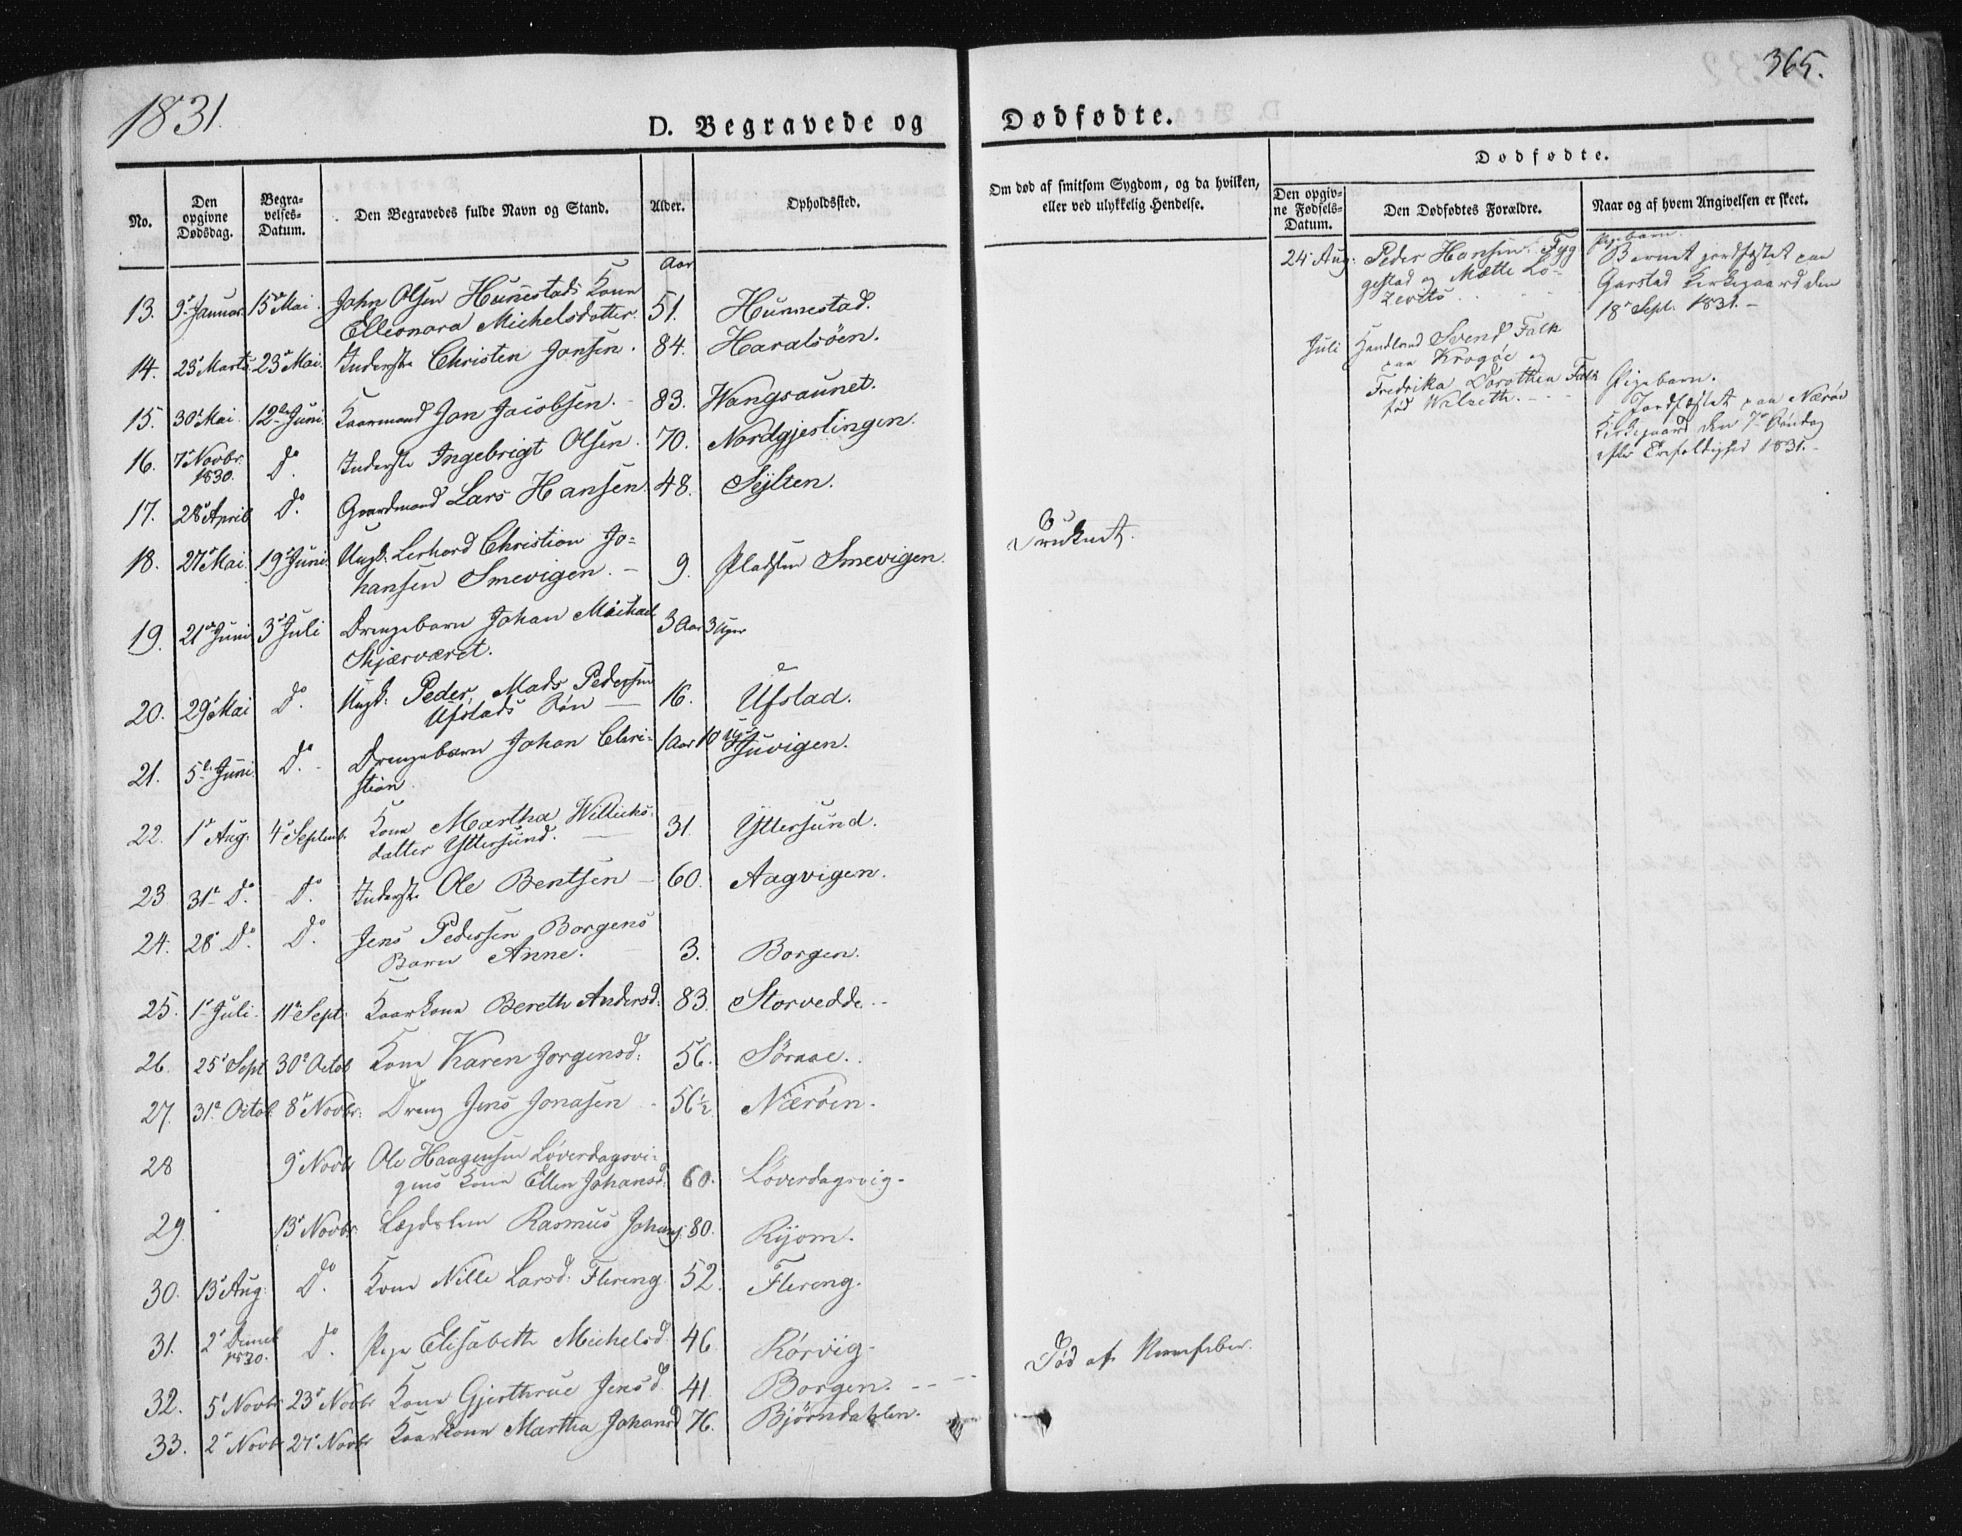 1831.
365.
D. Begravede og
Dødfødte.
No.
Den opgivne Dødsdag.
Begravelses-Datum.
Den Begravedes fulde Navn og Stand.
Alder.
Opholdssted.
Om død af smitsom Sygdom, og da hvilken, eller ved ulykkelig Hendelse.
Dødfødte.
Den opgivne Fødsels-Datum.
Den Dødfødtes Forældre.
Naar og af hvem Angivelsen er skeet.
Aar
13. 9 Januar 15 Mai John Olsen Hunnestads Kone
Elleonora Michelsdatter. 51. Hunnestad.
14. 23 Marts 23 Mai. Inderste Christen Jonsen. 84. Haralsöen.
15. 30 Mai 12te Juni Kaarmand Jon Jacobsen. 83. Wangsaunet.
16. 7 Novbr. 1830. Do. Inderste Ingebrigt Olsen. 70. Nordgjeslingen.
17. 28 April Do. Gaardmand Lars Hansen 48. Sylten.
18. 27 Mai 19 Juni Ungk. Lerhard Christian Jo-
hansen Smevigen. 9. Pladsen Smevigen.
Druknet.
19. 21 Juni 3 Juli Drengebarn Johan Michael
Skjærværet. 3 Aar 3 Uger
20. 29 Mai Do. Ungk: Peder Mads Pedersen
Ufstads Søn 16. Ufstad.
21. 5te Juni Do. Drengebarn Johan Chri-
stian 1 Aar 10 Juvigen.
22. 1 Aug. 4 Septemb. Kone Martha Willicks-
datter Yttersund. 31. Yttersund.
23 31 Do. Do. Inderste Ole Bentsen 60. Aagvigen.
24. 28 Do. Do. Jens Pedersen Borgens
Barn Anne. 3. Borgen.
25. 1 Juli 11 Sept. Kaarkone Bereth Andersd: 83. Storvedde.
26. 25 Sept 30 Octob Kone Karen Jorgensd: 56. Söraae.
27. 31 Octob. 8 Novbr. Dreng Jens Jonasen 56½ Nærøen.
28 9 Novbr Ole Haagensen Löverdagsvi-
gens Kone Ellen Johansd: 60. Löverdagsvig.
29 13 Novbr. Lægdslem Rasmus Johans. 80. Ryom.
30. 13 Aug. Do. Kone Nille Larsd: Flereng. 52. Flereng.
31. 2 Decemb 1830. Do. Pige Elisabeth Michelsd. 46. Rörvig.
Död af Nervefeber.
32. 5 Novbr 23 Novbr Kone Gjerthrue Jensd. 41. Borgen.
33. 2 Novbr 27 Novbr Kaarkone Martha Johansd 76. Björndahlen.
24 Aug: Peder Hansen Fyg
gestad og Mætte Lo-
Pigebarn.
Barnet jordfæstet paa
Garstad Kirkegaard den
18 Sept. 1831.
Juli Handlend Svend Falk
paa Krogöe og
Fredrika Dorothea Falk
föd Walseth.
Pigebarn.
Jordfæstet paa Nærøe
Kirkegaard den 7 Söndag
efter Trefoldighed 1831.